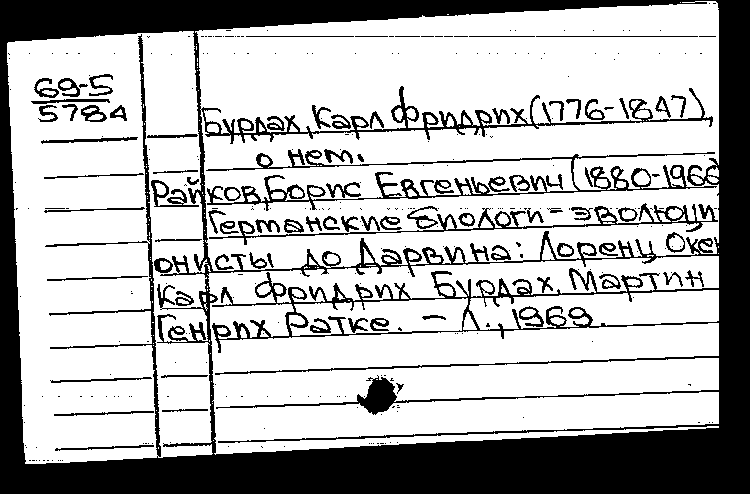 69-5
5784
Бурдах, Карл Фридрих (1776-1847),
о нем.
Райков, Борис Евгеньевич (1880-1966
Германские биологи - эволюци
онисты до Дарвина: Лоренц Окен
Карл Фридрих Бурдах. Мартин
Генрих Ратке. - Л., 1969.